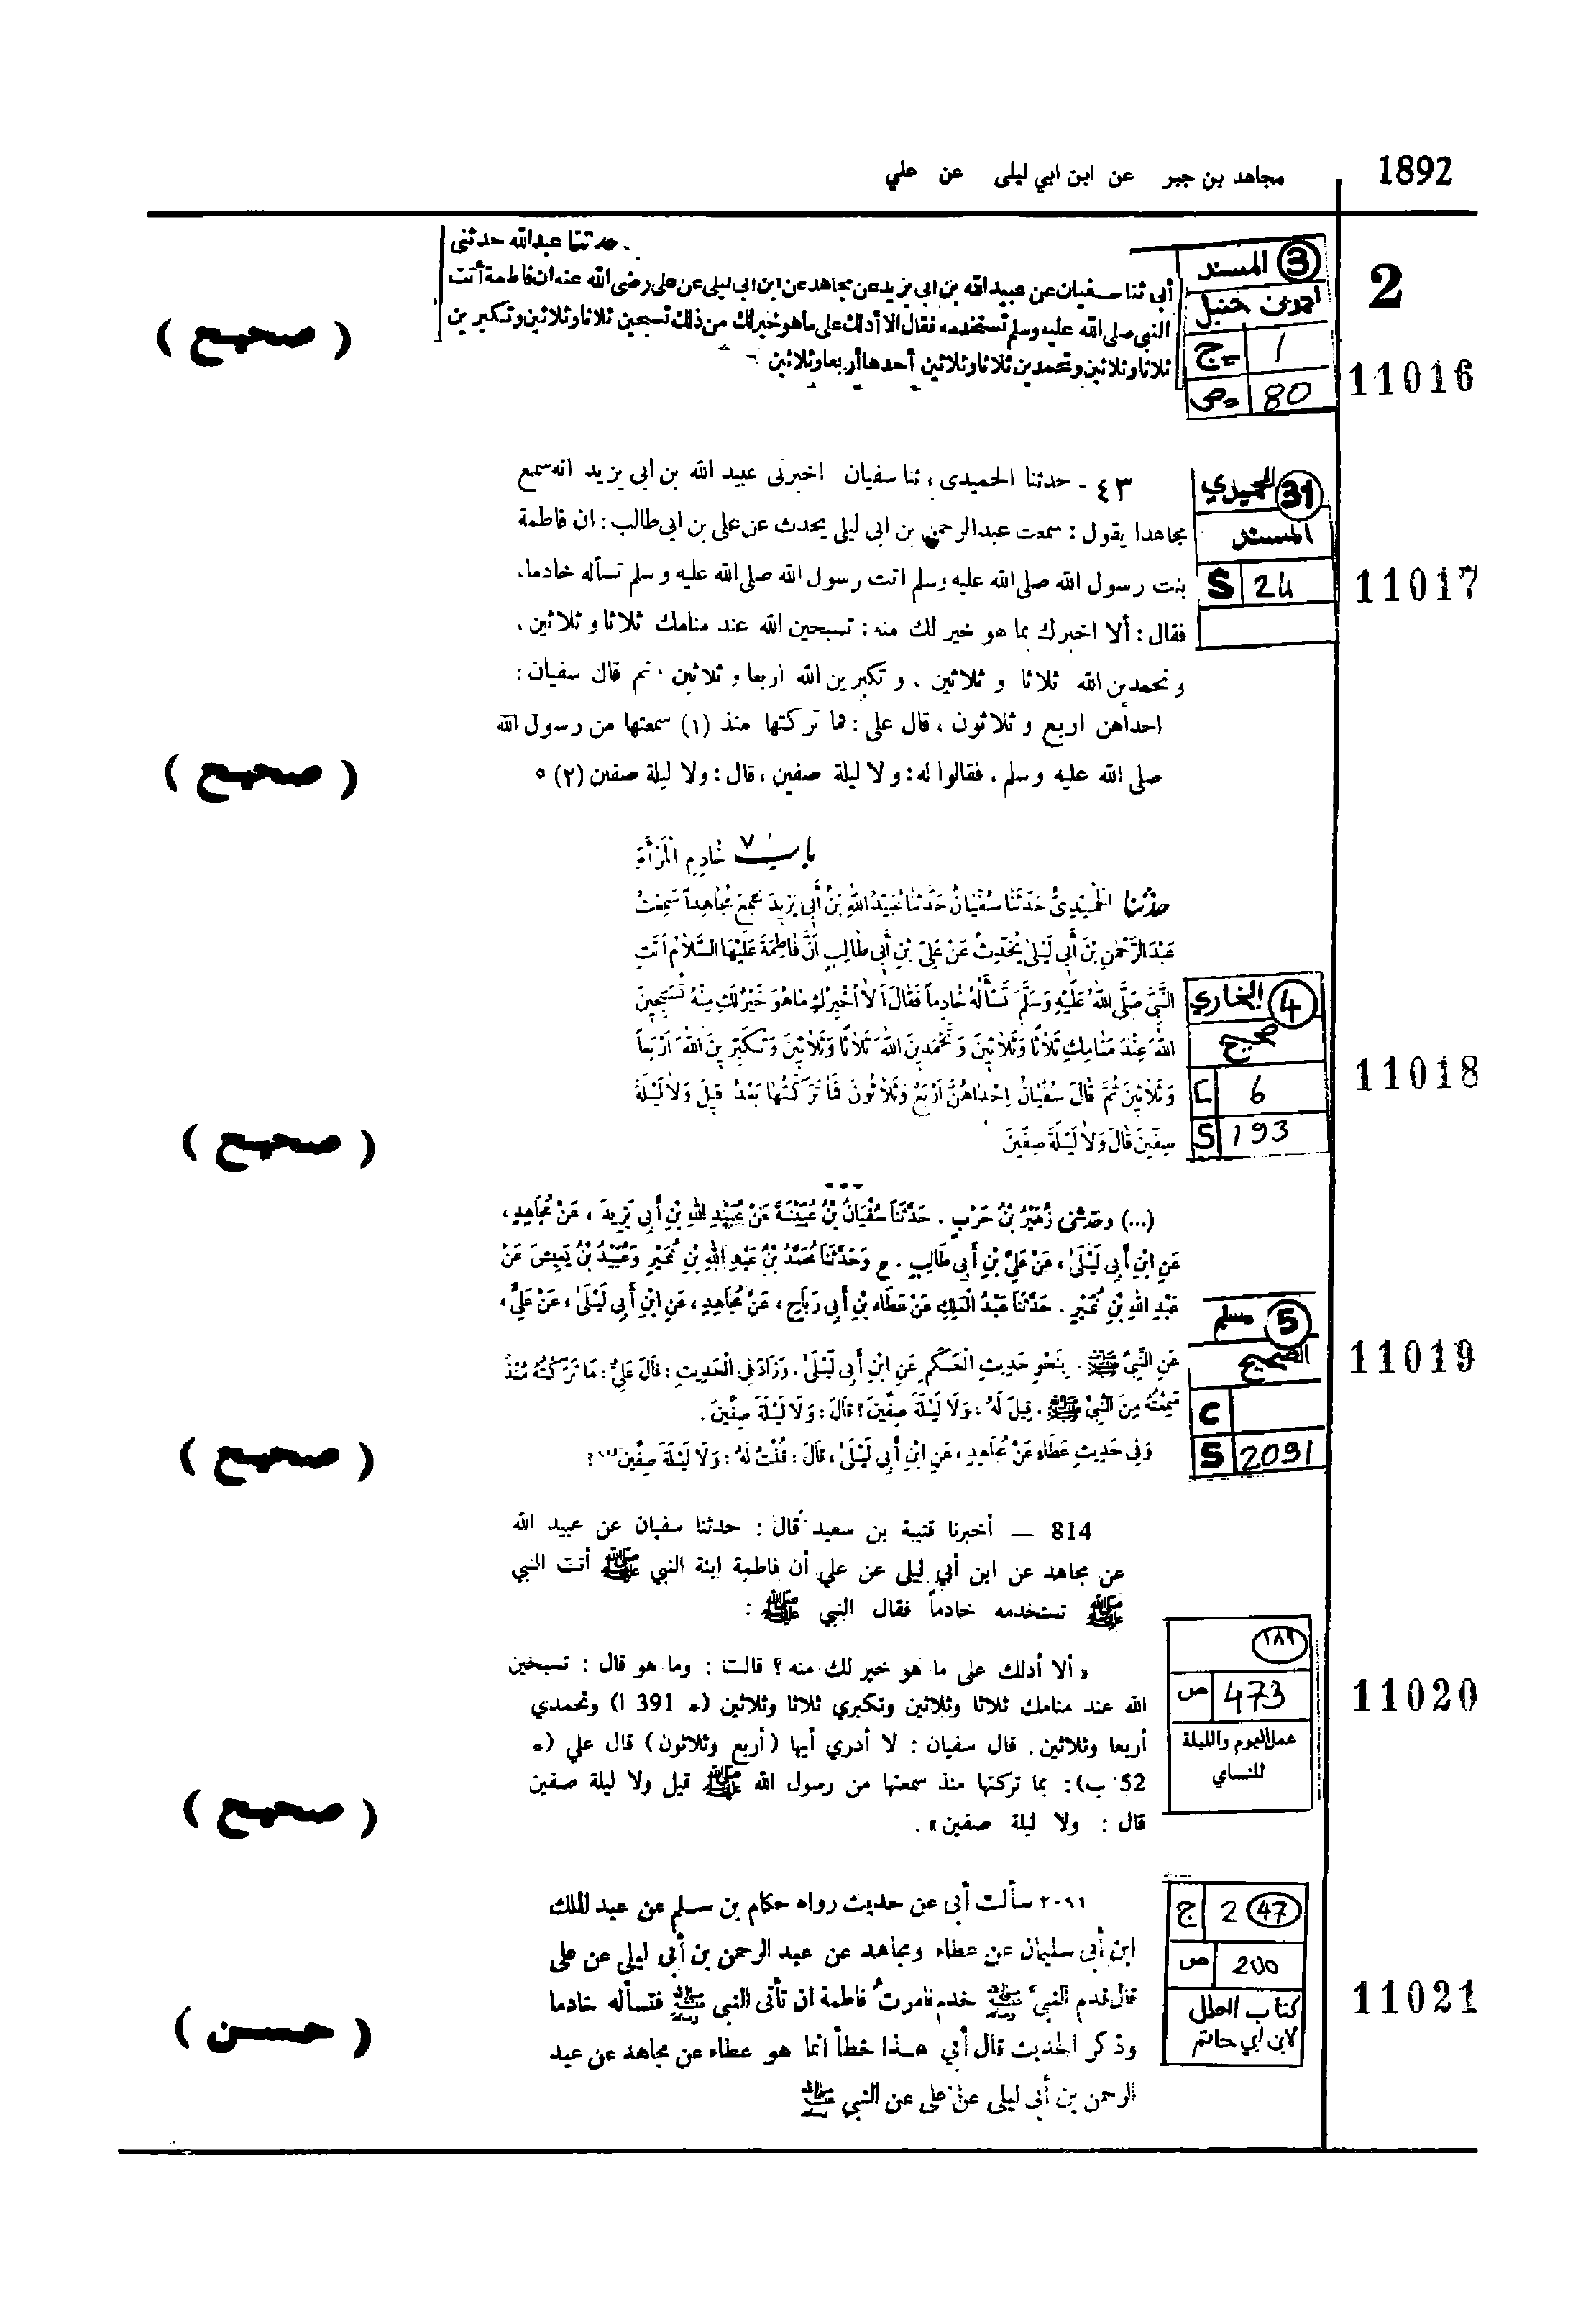 1892
مجاهد بن جبر عن ابن ابي ليلى عن علي
2
11016
3 المسند
احمد بن حنبل
ج 1
ص 80
حدثنا عبدالله حدثنى
أبى ثنا سفيان عن عبيد الله بن ابى يزيد عن مجاهد عن ابن ابى ليلى عن على رضى الله عنه ان فاطمة أتت
النبى صلى الله عليه وسلم تستخدمه فقال الا أدلك على ما هو خير لك من ذلك تسبحين ثلاثا وثلاثين وتكبرين
ثلاثا وثلاثين وتحمدين ثلاثا وثلاثين أحدها أربعا وثلاثين
( صحيح )
11017
31 الحميدي
المسند
S 24
٤٣ - حدثنا الحميدى ، ثنا سفيان اخبرنى عبيد الله بن ابى يزيد انه سمع
مجاهدا يقول : سمعت عبدالرحمن بن ابى ليلى يحدث عن على بن ابى طالب : ان فاطمة
بنت رسول الله صلى الله عليه وسلم اتت رسول الله صلى الله عليه وسلم تسأله خادما ،
فقال : ألا اخبرك بما هو خير لك منه : تسبحين الله عند منامك ثلاثا و ثلاثين ،
و تحمدين الله ثلاثا و ثلاثين . و تكبرين الله اربعا و ثلاثين . ثم قال سفيان :
احداهن اربع و ثلاثون ، قال على : فما تركتها منذ (١) سمعتها من رسول الله
صلى الله عليه وسلم ، فقالوا له : ولا ليلة صفين ، قال : ولا ليلة صفين (٢) ٥
( صحيح )
11018
4 البخاري
صحيح
C 6
S 193
بابُ ٧ خَادِمِ الْمَرْأَةِ
حدّثنا الْحُمَيْدِىُّ حَدَّثَنَا سُفْيَانُ حَدَّثَنَا عُبَيْدُ اللهِ بْنُ أَبِى يَزِيدَ سَمِعَ مُجَاهِداً سَمِعْتُ
عَبْدَ الرَّحْمٰنِ بْنَ أَبِى لَيْلىٰ يُحَدِّثُ عَنْ عَلِىِّ بْنِ أَبِى طَالِبٍ أَنَّ فَاطِمَةَ عَلَيْهَا السَّلَامُ أَتَتِ
النَّبِىَّ صَلَّى اللهُ عَلَيْهِ وَسَلَّمَ تَسْأَلُهُ خَادِماً فَقَالَ أَلَا أُخْبِرُكِ مَا هُوَ خَيْرٌ لَكِ مِنْهُ تُسَبِّحِينَ
اللهَ عِنْدَ مَنَامِكِ ثَلَاثاً وَثَلَاثِينَ وَتَحْمَدِينَ اللهَ ثَلَاثاً وَثَلَاثِينَ وَتُكَبِّرِينَ اللهَ أَرْبَعاً
وَثَلَاثِينَ ثُمَّ قَالَ سُفْيَانُ إِحْدَاهُنَّ أَرْبَعٌ وَثَلَاثُونَ فَمَا تَرَكْتُهَا بَعْدُ قِيلَ وَلَا لَيْلَةَ
صِفِّينَ قَالَ وَلَا لَيْلَةَ صِفِّينَ
( صحيح )
11019
5 مسلم
الصحيح
C
S 2091
(...) وحَدّثنى زُهَيْرُ بْنُ حَرْبٍ . حَدَّثَنَا سُفْيَانُ بْنُ عُيَيْنَةَ عَنْ عُبَيْدِ اللهِ بْنِ أَبِى يَزِيدَ ، عَنْ مُجَاهِدٍ ،
عَنِ ابْنِ أَبِى لَيْلَىٰ ، عَنْ عَلِىِّ بْنِ أَبِى طَالِبٍ . ح وَحَدَّثَنَا مُحَمَّدُ بْنُ عَبْدِ اللهِ بْنِ نُمَيْرٍ وَعُبَيْدُ بْنُ يَعِيشَ عَنْ
عَبْدِ اللهِ بْنِ نُمَيْرٍ . حَدَّثَنَا عَبْدُ الْمَلِكِ عَنْ عَطَاءِ بْنِ أَبِى رَبَاحٍ ، عَنْ مُجَاهِدٍ ، عَنِ ابْنِ أَبِى لَيْلَىٰ ، عَنْ عَلِىٍّ ،
عَنِ النَّبِىِّ ﷺ . بِنَحْوِ حَدِيثِ الْحَكَمِ عَنِ ابْنِ أَبِى لَيْلَىٰ . وَزَادَ فِى الْحَدِيثِ : قَالَ عَلِىٌّ : مَا تَرَكْتُهُ مُنْذُ
سَمِعْتُهُ مِنَ النَّبِىِّ ﷺ . قِيلَ لَهُ : وَلَا لَيْلَةَ صِفِّينَ ؟ قَالَ : وَلَا لَيْلَةَ صِفِّينَ .
وَفِى حَدِيثِ عَطَاءٍ عَنْ مُجَاهِدٍ ، عَنِ ابْنِ أَبِى لَيْلَىٰ ، قَالَ : قُلْتُ لَهُ : وَلَا لَيْلَةَ صِفِّينَ ؟
( صحيح )
11020
١٨٩
ص 473
عمل اليوم والليلة
للنساي
814 — أخبرنا قتيبة بن سعيد قال : حدثنا سفيان عن عبيد الله
عن مجاهد عن ابن أبي ليلى عن علي أن فاطمة ابنة النبي ﷺ أتت النبي
ﷺ تستخدمه خادماً فقال النبي ﷺ :
« ألا أدلك على ما هو خير لك منه ؟ قالت : وما هو قال : تسبحين
الله عند منامك ثلاثا وثلاثين وتكبري ثلاثا وثلاثين (* 391 ا) وتحمدي
أربعا وثلاثين . قال سفيان : لا أدري أيها (أربع وثلاثون) قال علي (*
52 ب) : بما تركتها منذ سمعتها من رسول الله ﷺ قيل ولا ليلة صفين
قال : ولا ليلة صفين » .
( صحيح )
11021
47 2 ج
ص 200
كتاب العلل
لابن ابي حاتم
٢٠٩١ سألت أبى عن حديث رواه حكام بن سلم عن عبد الملك
ابن أبى سليمان عن عطاء ومجاهد عن عبد الرحمن بن أبى ليلى عن على
قال قدم النبى ﷺ خدم فامرت فاطمة ان تأتى النبى ﷺ فتسأله خادما
وذكر الحديث قال أبي هذا خطأ انما هو عطاء عن مجاهد عن عبد
الرحمن بن أبى ليلى عن على عن النبي ﷺ
( حسن )